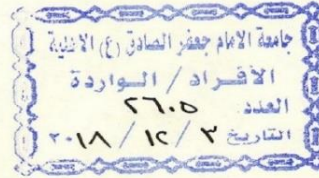 جامعة الامام جعفر الصادق (ع) الاهلية
الافراد / الواردة
العدد ٢٦٠٥
التاريخ ٣ / ١٢ / ٢٠١٨